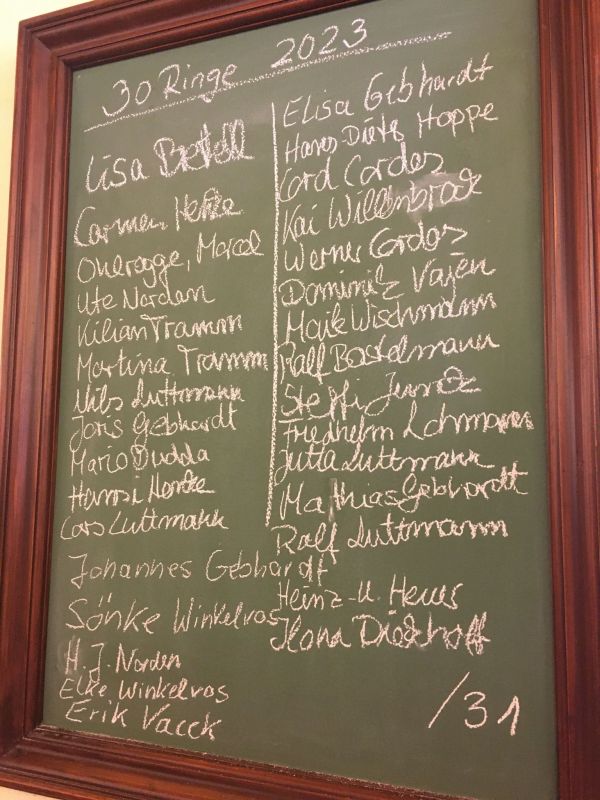 30 Ringe 2023
Lisa
Carmen Henke
Oheregge, Marcel
Ute Norden
Kilian Tramm
Martina Tramm
Nils Luttmann
Joris Gebhardt
Mario Dudda
Hansi Henke
Lars Luttmann
Johannes Gebhardt
Sönke Winkelvos
H. J. Norden
Elke Winkelvos
Erik Vaeck
Elisa Gebhardt
Hans-Dieter Hoppe
Cord Cordes
Kai Willenbrock
Werner Cordes
Dominik Vajen
Maik Wischmann
Ralf Bostelmann
Steffi
Friedhelm Lohmann
Jutta Luttmann
Mathias Gebhardt
Ralf Luttmann
Heinz-U. Heuer
Ilona Dieckhoff
/31